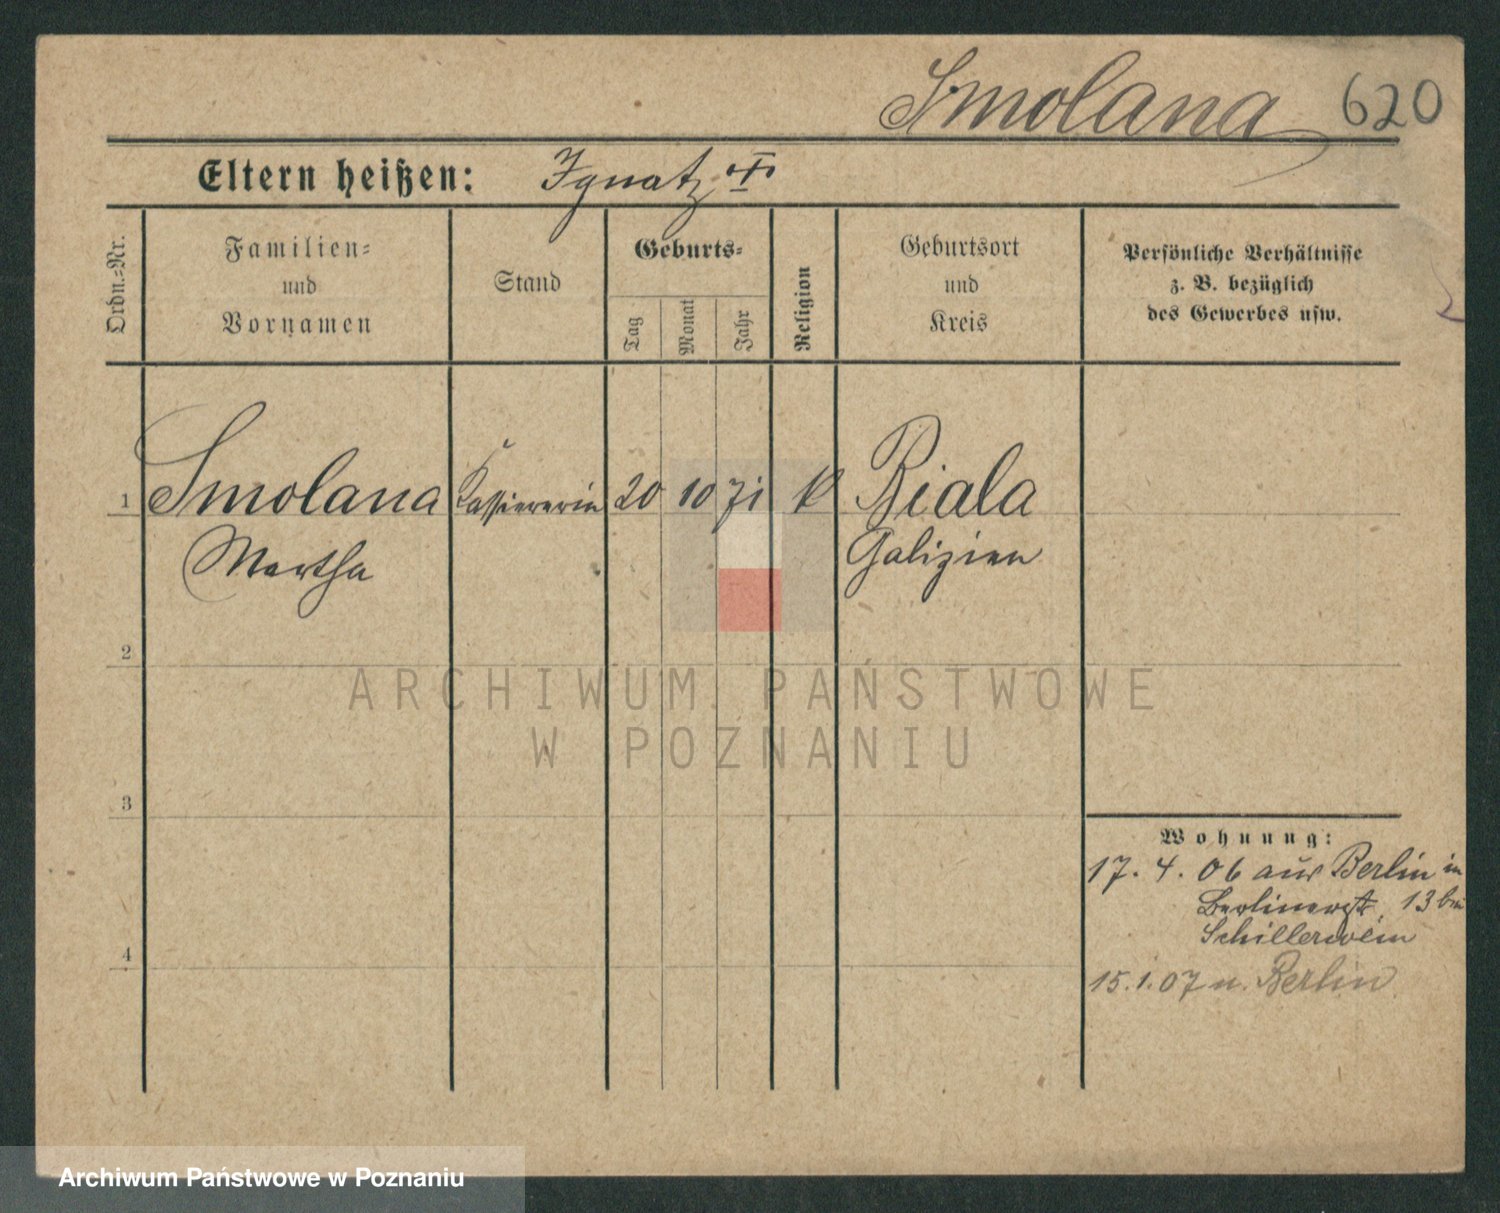 Smolana 620
Eltern heißen: Ignatz †
Ordn.-Nr.
Familien-
und
Vornamen
Stand
Geburts-
Tag
Monat
Jahr
Religion
Geburtsort
und
Kreis
Persönliche Verhältnisse
z. B. bezüglich
des Gewerbes usw.
1 Smolana Kassiererin 20 10 71 k Biala
Martha Galizien
2
ARCHIWUM PAŃSTWOWE
W POZNANIU
3
Wohnung:
17. 4. 06 aus Berlin in
Berlinerstr. 13 bei
Schillerwein
4
15. 1. 07 n. Berlin
Archiwum Państwowe w Poznaniu